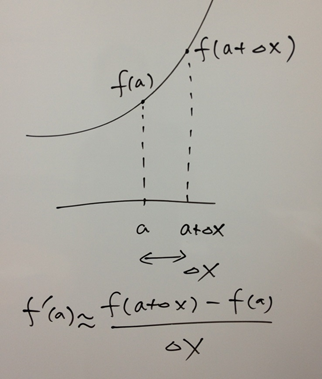 f(a+Δx)
f(a)
a a+Δx
Δx
f'(a)≈ f(a+Δx) - f(a)
Δx